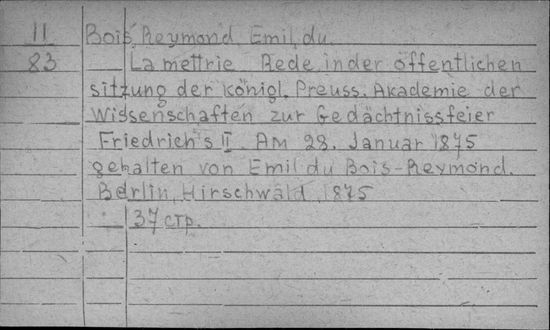 II Bois, Reymond Emil, du
83 La mettrie Rede in der öffentlichen
sitzung der königl. Preuss. Akademie der
Wissenschaften zur Gedächtnissfeier
Friedrich's II. Am 28. Januar 1875
gehalten von Emil du Bois-Reymond.
Berlin, Hirschwald, 1875
37 стр.